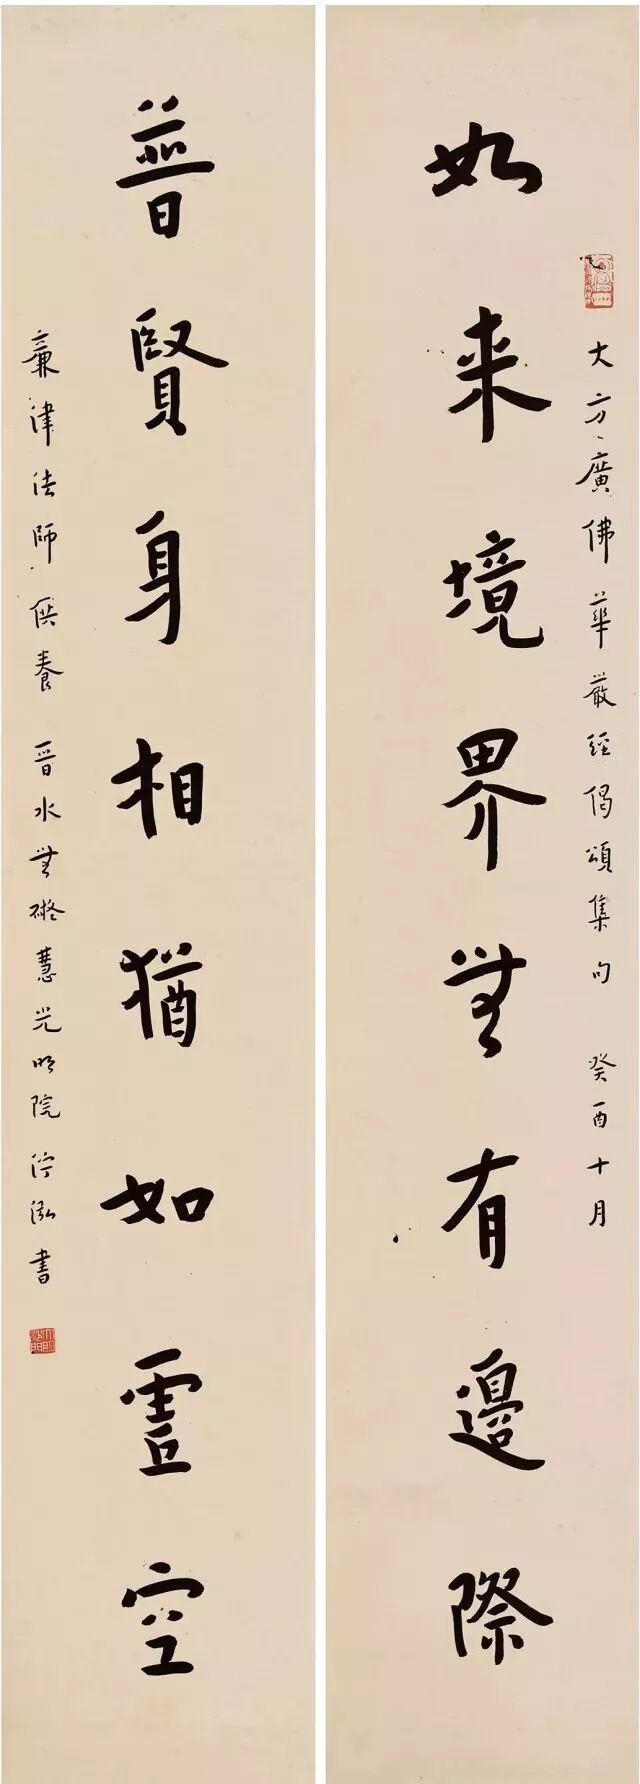 大方廣佛華嚴經偈頌集句 癸酉十月
如来境界無有邊際
普賢身相猶如虛空
津法師供養 晉水無礙慧光明院 書